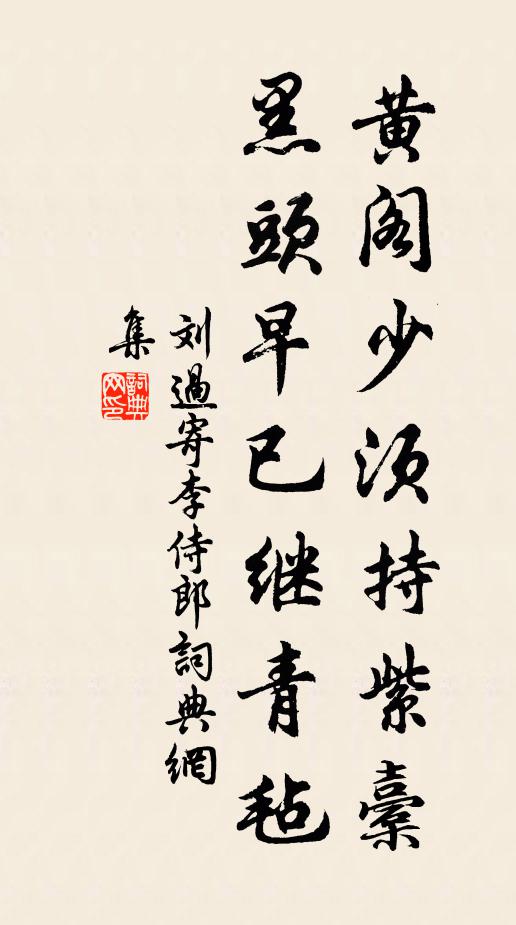 黄阁少须持紫橐
黑頭早已继青毡
刘過寄李侍郎詞典網
集
詞典网印